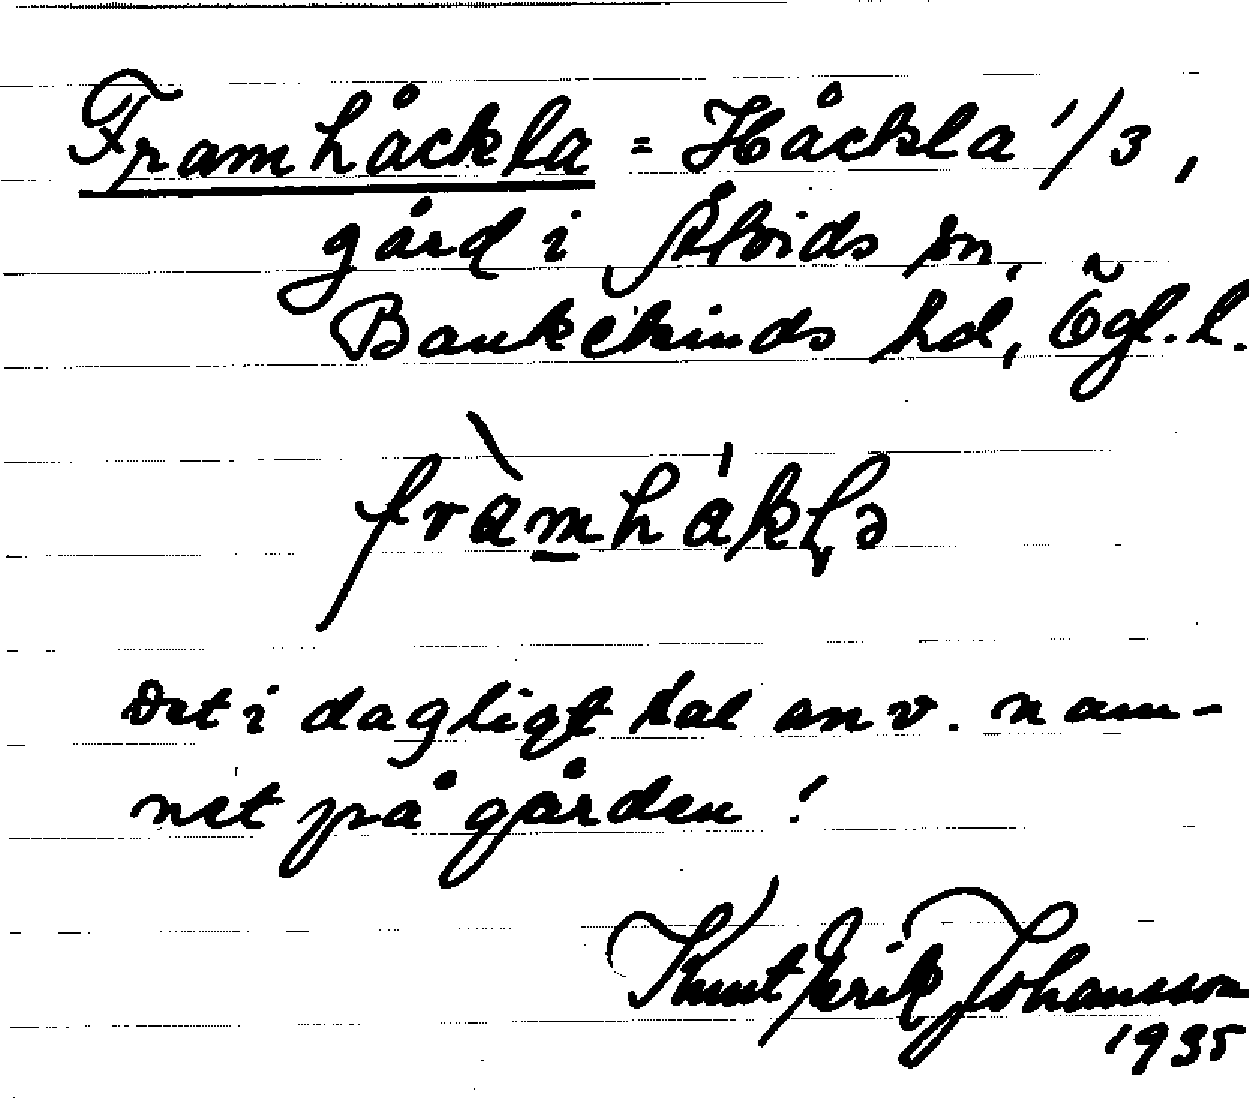 Framhåckla = Håckla 1/3,
gård i Skeids sn,
Bankekinds hd, Ögl. l.
fràmhákḷə
Det i dagligt tal anv. nam-
net på gården!
Knut Erik Johansson
1935